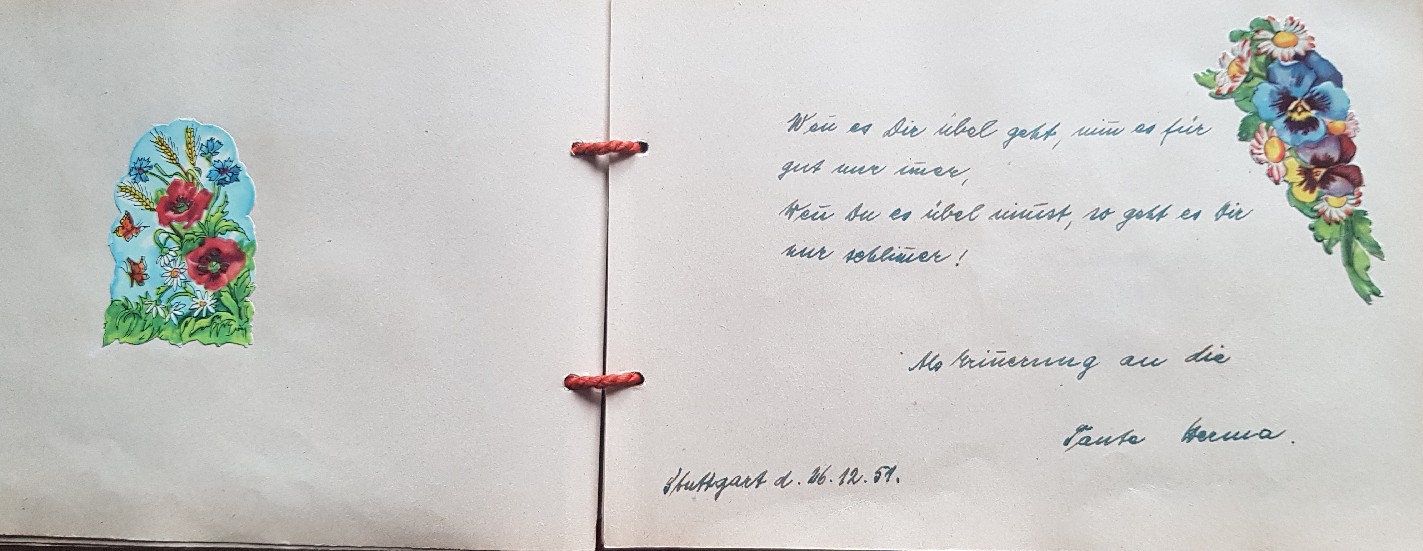 Wen̄ es Dir übel geht, nim̄ es für
gut nur im̄er,
Wen̄ Du es übel nim̄st, so geht es Dir
nur schlim̄er!
Als Erin̄erung an die
Tante Herma.
Stuttgart d. 26.12.51.